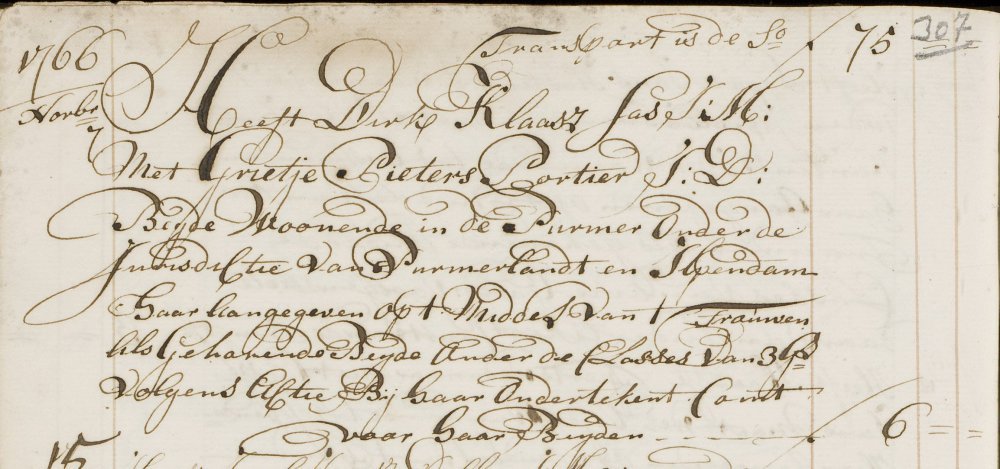 307
1766 Transpart is de So 75
Novbr Heeft Dirk Klaasz Jas J: M:
7 Met Grietje Pieters Portier J: D:
Beyde Woonende in de Purmer Onder de
Jurisdictie Van Purmerlandt en Ilpendam
haar Aangegeven op t Middel Van t Trouwen
Als Gehorende Beyde Onder de Classes Van 3 g
Volgens Actie Bij haar Ondertekent Comt
voor haar Beyden - - - - - 6 = =
15